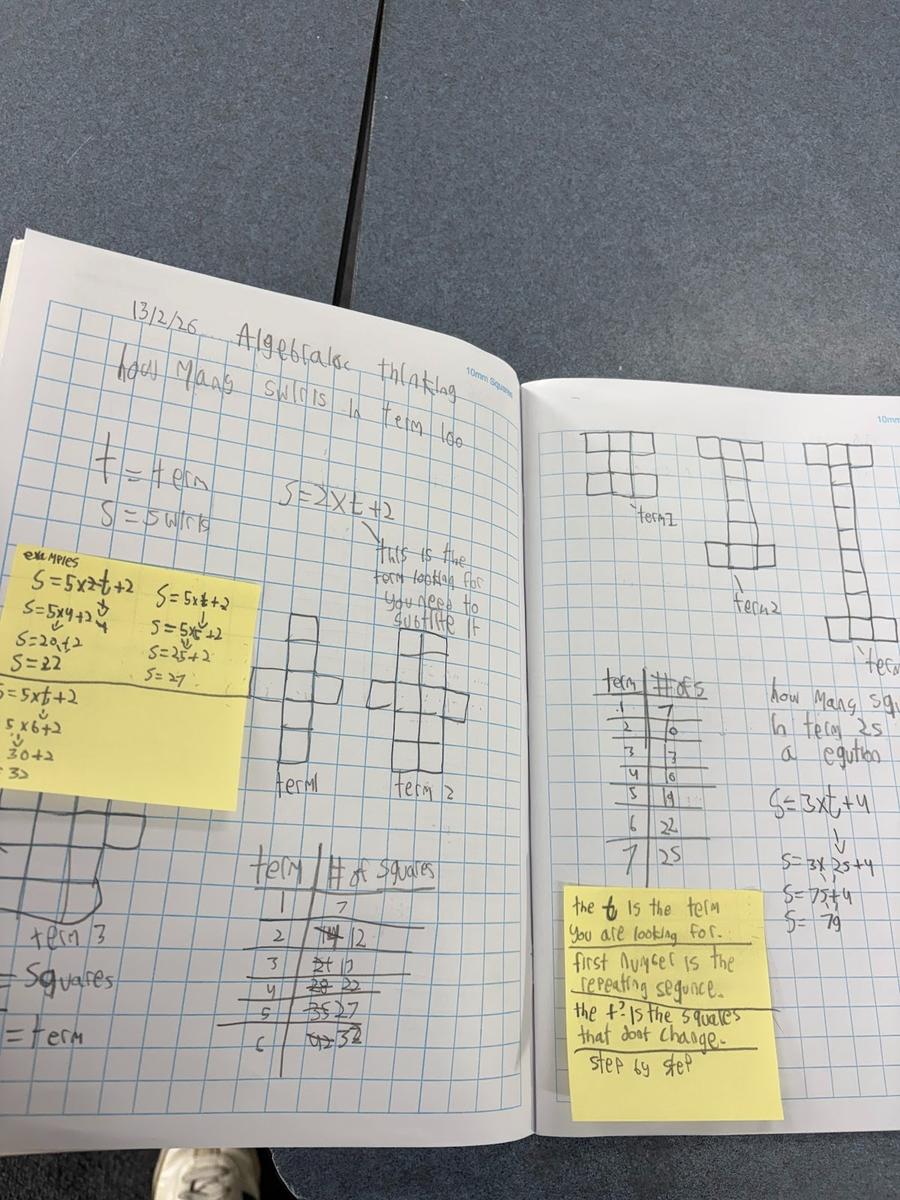 13/2/26
Algebraloc thinking
10mm Squares
how Many swirls in term 100
t = term
S = swirls
S=2xt+2
this is the
term looking for
you need to
subtite it
examples
S=5xt+2
S=5x4+2
4
S=20+2
S=22
S=5xt+2
S=5x5+2
S=25+2
S=27
S=5xt+2
5x6+2
30+2
= 32
term1
term 2
term 3
= Squares
= term
term # of Squares
1 7
2 14 12
3 21 17
4 28 22
5 35 27
6 42 32
10mm
term1
term2
term
term # of s
1 7
2 10
3 13
4 16
5 19
6 22
7 25
how Many squ
in term 25
a eqution
S=3xt+4
S=3x25+4
S=75+4
S= 79
the t is the term
you are looking for.
first number is the
repeating sequnce.
the t? is the squares
that dont change.
step by step